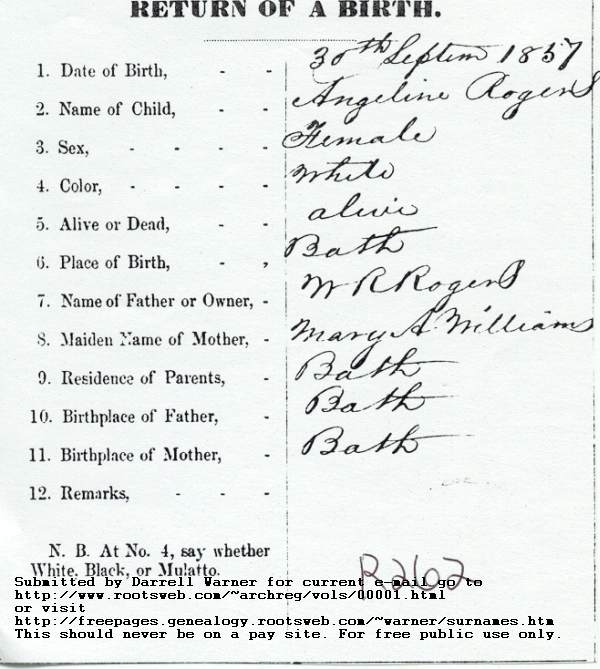 RETURN OF A BIRTH.
1. Date of Birth, - - 30th Septem 1857
2. Name of Child, - - Angeline Rogers
3. Sex, - - - - Female
4. Color, - - - - White
5. Alive or Dead, - - alive
6. Place of Birth, - - Bath
7. Name of Father or Owner, - W R Rogers
8. Maiden Name of Mother, - Mary A. Williams
9. Residence of Parents, - Bath
10. Birthplace of Father, - Bath
11. Birthplace of Mother, - Bath
12. Remarks, - - -
N. B. At No. 4, say whether
White, Black, or Mulatto.
R262
Submitted by Darrell Warner for current e-mail go to
http://www.rootsweb.com/~archreg/vols/00001.html
or visit
http://freepages.genealogy.rootsweb.com/~warner/surnames.htm
This should never be on a pay site. For free public use only.